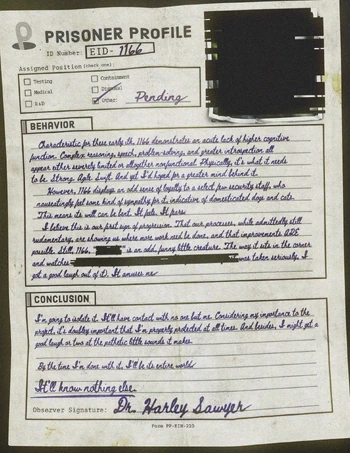 PRISONER PROFILE
ID Number: EID-1166
Assigned Position (check one):
Testing
Containment
Medical
Disposal
R&D
Other: Pending
BEHAVIOR
Characteristic for these early ith, 1166 demonstrates an acute lack of higher cognitive
function. Complex reasoning, speech, problem-solving, and greater introspection all
appear either severely limited or altogether nonfunctional. Physically, it's what it needs
to be. Strong. Agile. Swift. And yet I'd hoped for a greater mind behind it.
However, 1166 displays an odd sense of loyalty to a select few security staff, who
nauseatingly feel some kind of sympathy for it, indicative of domesticated dogs and cats.
This means its will can be bent. It feels. It fears.
I believe this is our first sign of progression. That our processes, while admittedly still
rudimentary, are showing us where more work need be done, and that improvements ARE
possible. Still, 1166, is an odd, funny little creature. The way it sits in the corner
and watches were taken seriously, I
got a good laugh out of it). It amuses me
CONCLUSION
I'm going to isolate it. It'll have contact with no one but me. Considering my importance to the
project, it's doubly important that I'm properly protected at all times. And besides, I might get a
good laugh or two at the pathetic little sounds it makes.
By the time I'm done with it, I'll be its entire world
It'll know nothing else.
Observer Signature: Dr. Harley Sawyer